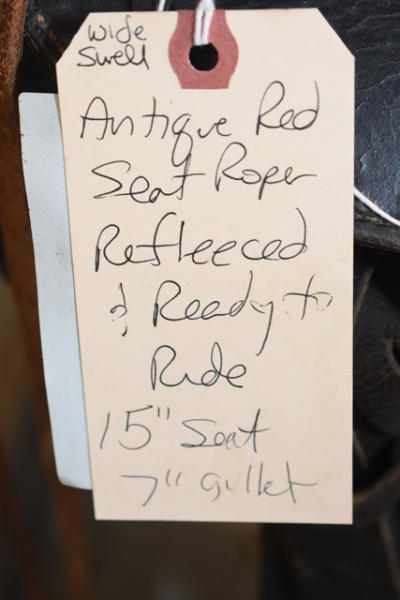 wide
swell
Antique Red
Seat Roper
Refleeced
& Ready to
Ride
15" Seat
7" gullet